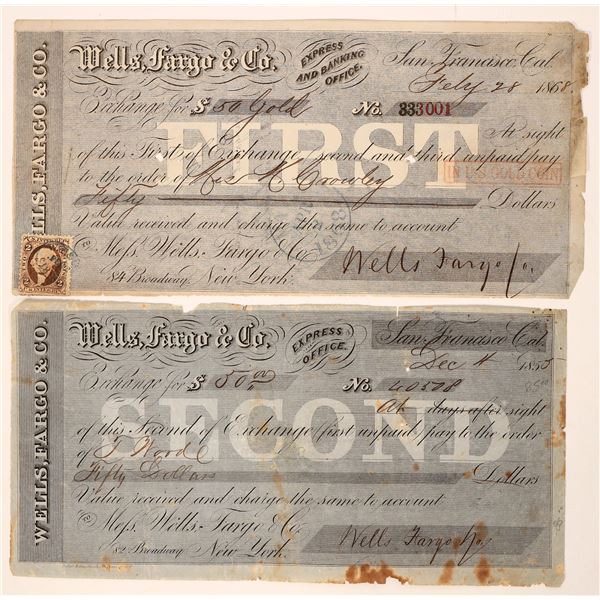 WELLS, FARGO & CO.
Wells, Fargo & Co.
EXPRESS AND BANKING OFFICE.
San Francisco, Cal.
Feby 28 1868
Exchange for $ 50 Gold No. 333001
FIRST
At sight
of this First of Exchange, second and third unpaid, pay
to the order of Miss M Crowley
IN U.S. GOLD COIN
Fifty Dollars
Value received and charge the same to account
To Mess. Wells, Fargo & Co.
84 Broadway, New York.
Wells Fargo & Co.
WELLS, FARGO & CO.
Wells, Fargo & Co.
EXPRESS OFFICE.
San Francisco, Cal.
Dec 4 1855
Exchange for $ 50.00 No. 40578
SECOND
At days after sight
of this Second of Exchange (first unpaid) pay to the order
of
Fifty Dollars Dollars
Value received and charge the same to account
To Mess. Wells, Fargo & Co.
82 Broadway New York.
Wells Fargo & Co.